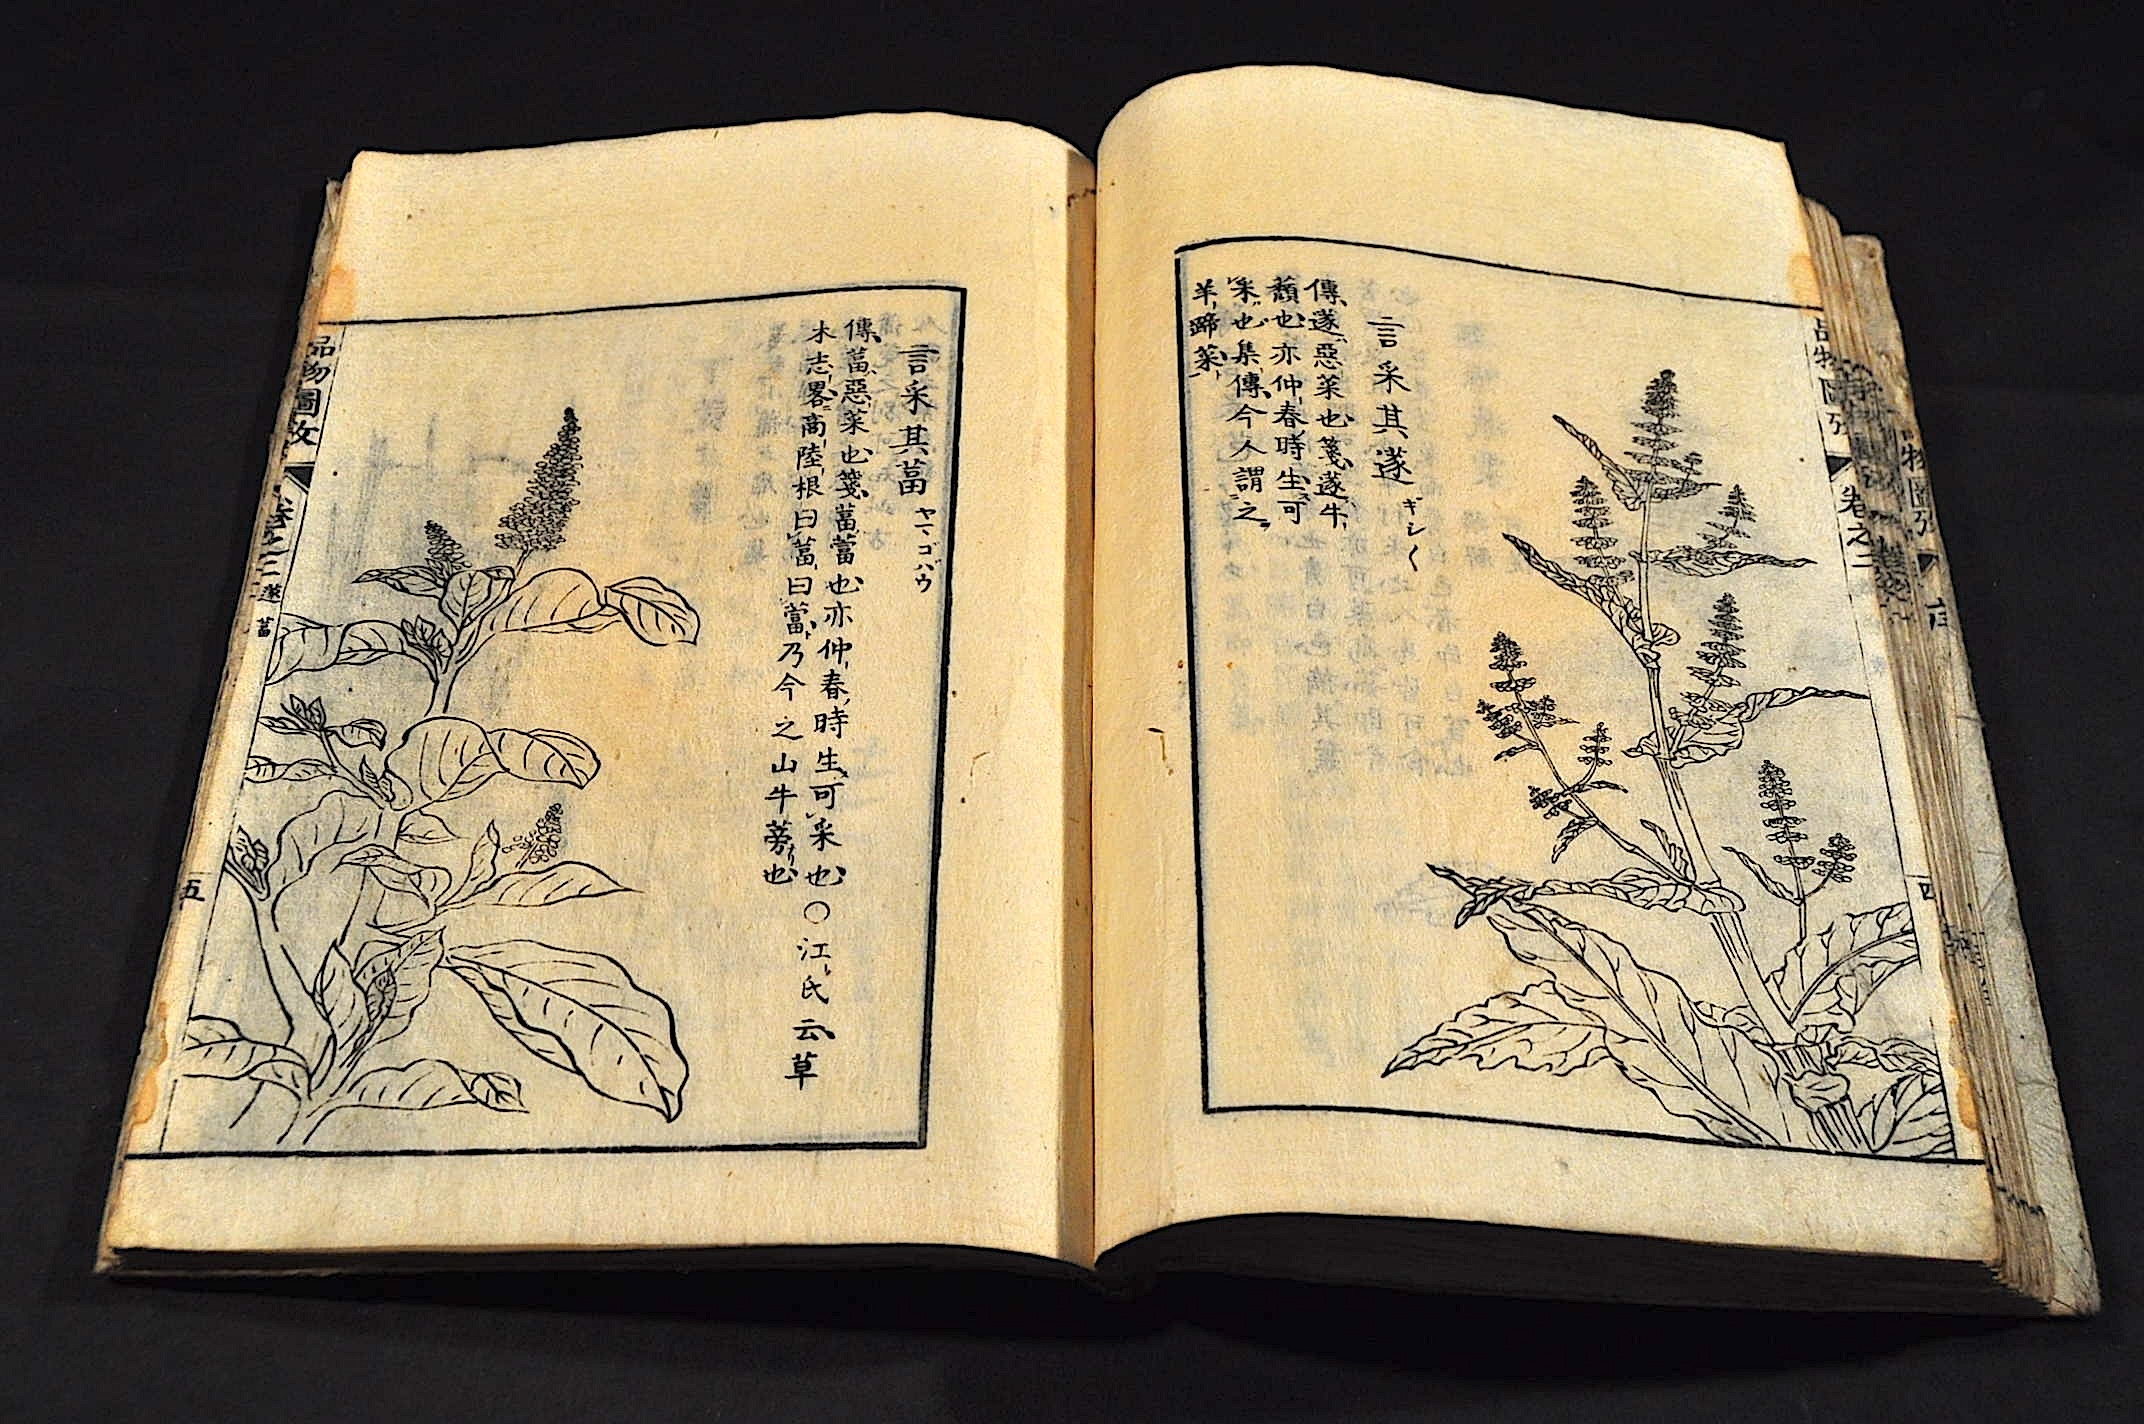 言采其蓫 ギシ〱
傳蓫惡菜也箋蓫牛
蘈也亦仲春時生可
采也集傳今人謂之
羊蹄菜
品物圖攷
卷之二
四
言采其葍 ヤマゴバウ
傳葍惡菜也箋葍䔰也亦仲春時生可采也○江氏云草
木志畧商陸根曰葍曰䔰乃今之山牛蒡也
品物圖攷
卷之二
蓫 葍
五